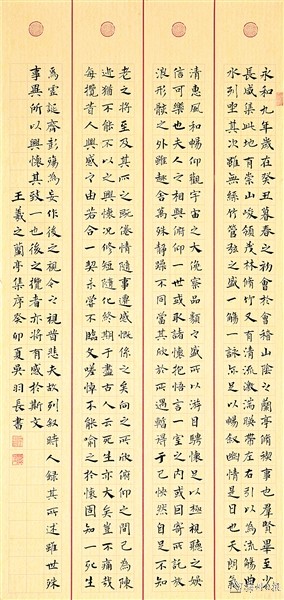 永和九年歲在癸丑暮春之初會於會稽山陰之蘭亭脩稧事也群賢畢至少
長咸集此地有崇山峻領茂林脩竹又有清流激湍暎帶左右引以為流觴曲
水列坐其次雖無絲竹管弦之盛一觴一詠亦足以暢敘幽情是日也天朗氣
清惠風和暢仰觀宇宙之大俯察品類之盛所以游目騁懷足以極視聽之娛
信可樂也夫人之相與俯仰一世或取諸懷抱悟言一室之內或因寄所託放
浪形骸之外雖趣舍萬殊靜躁不同當其欣於所遇暫得於己怏然自足不知
老之將至及其所之既倦情隨事遷感慨係之矣向之所欣俯仰之間已為陳
迹猶不能不以之興懷況修短隨化終期於盡古人云死生亦大矣豈不痛哉
每攬昔人興感之由若合一契未嘗不臨文嗟悼不能喻之於懷固知一死生
為虛誕齊彭殤為妄作後之視今之視昔悲夫故列叙時人録其所述雖世殊
事異所以興懷其致一也後之攬者亦將有感於斯文
王羲之蘭亭集序癸卯夏吳羽長書